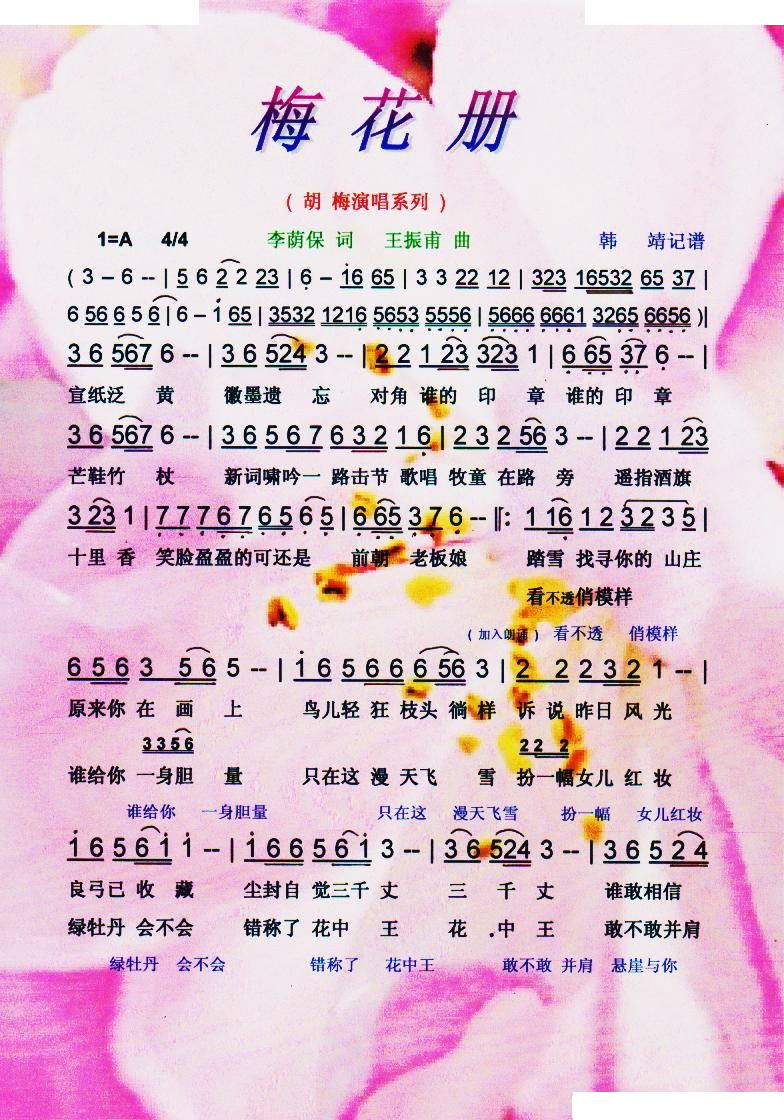 梅花册
( 胡 梅演唱系列 )
1=A 4/4 李荫保 词 王振甫 曲 韩 靖记谱
( 3 – 6 -- | 5 6 2 2 23 | 6 – 16 65 | 3 3 22 12 | 323 16532 65 37 |
6 56 6 5 6 | 6 – 1 65 | 3532 1216 5653 5556 | 5666 6661 3265 6656 )|
3 6 567 6 -- | 3 6 524 3 -- | 2 2 1 23 323 1 | 6 65 37 6 -- |
宣纸泛 黄 徽墨遗 忘 对角 谁的 印 章 谁的 印 章
3 6 567 6 -- | 3 6 5 6 7 6 3 2 1 6 | 2 3 2 56 3 -- | 2 2 1 23
芒鞋竹 杖 新词啸吟一 路击节 歌唱 牧童 在路 旁 遥指酒旗
3 23 1 | 7 7 7 6 7 6 5 6 5 | 6 65 3 7 6 -- ‖: 1 16 1 2 3 2 3 5 |
十里 香 笑脸盈盈的可还是 前朝 老板娘 踏雪 找寻你的 山庄
看不透俏模样
( 加入朗诵 ) 看不透 俏模样
6 5 6 3 5 6 5 -- | 1 6 5 6 6 6 56 3 | 2 2 2 3 2 1 -- |
原来你 在 画 上 鸟儿轻 狂 枝头 徜 样 诉 说 昨日 风 光
3 3 5 6 2 2 2
谁给你 一身胆 量 只在这 漫 天飞 雪 扮一幅女儿 红 妆
谁给你 一身胆量 只在这 漫天飞雪 扮一幅 女儿红妆
1 6 5 6 1 1 -- | 1 6 6 5 6 1 3 -- | 3 6 524 3 -- | 3 6 5 2 4
良弓已 收 藏 尘封自 觉三千 丈 三 千 丈 谁敢相信
绿牡丹 会不会 错称了 花中 王 花 中 王 敢不敢并肩
绿牡丹 会不会 错称了 花中王 敢不敢 并肩 悬崖与你